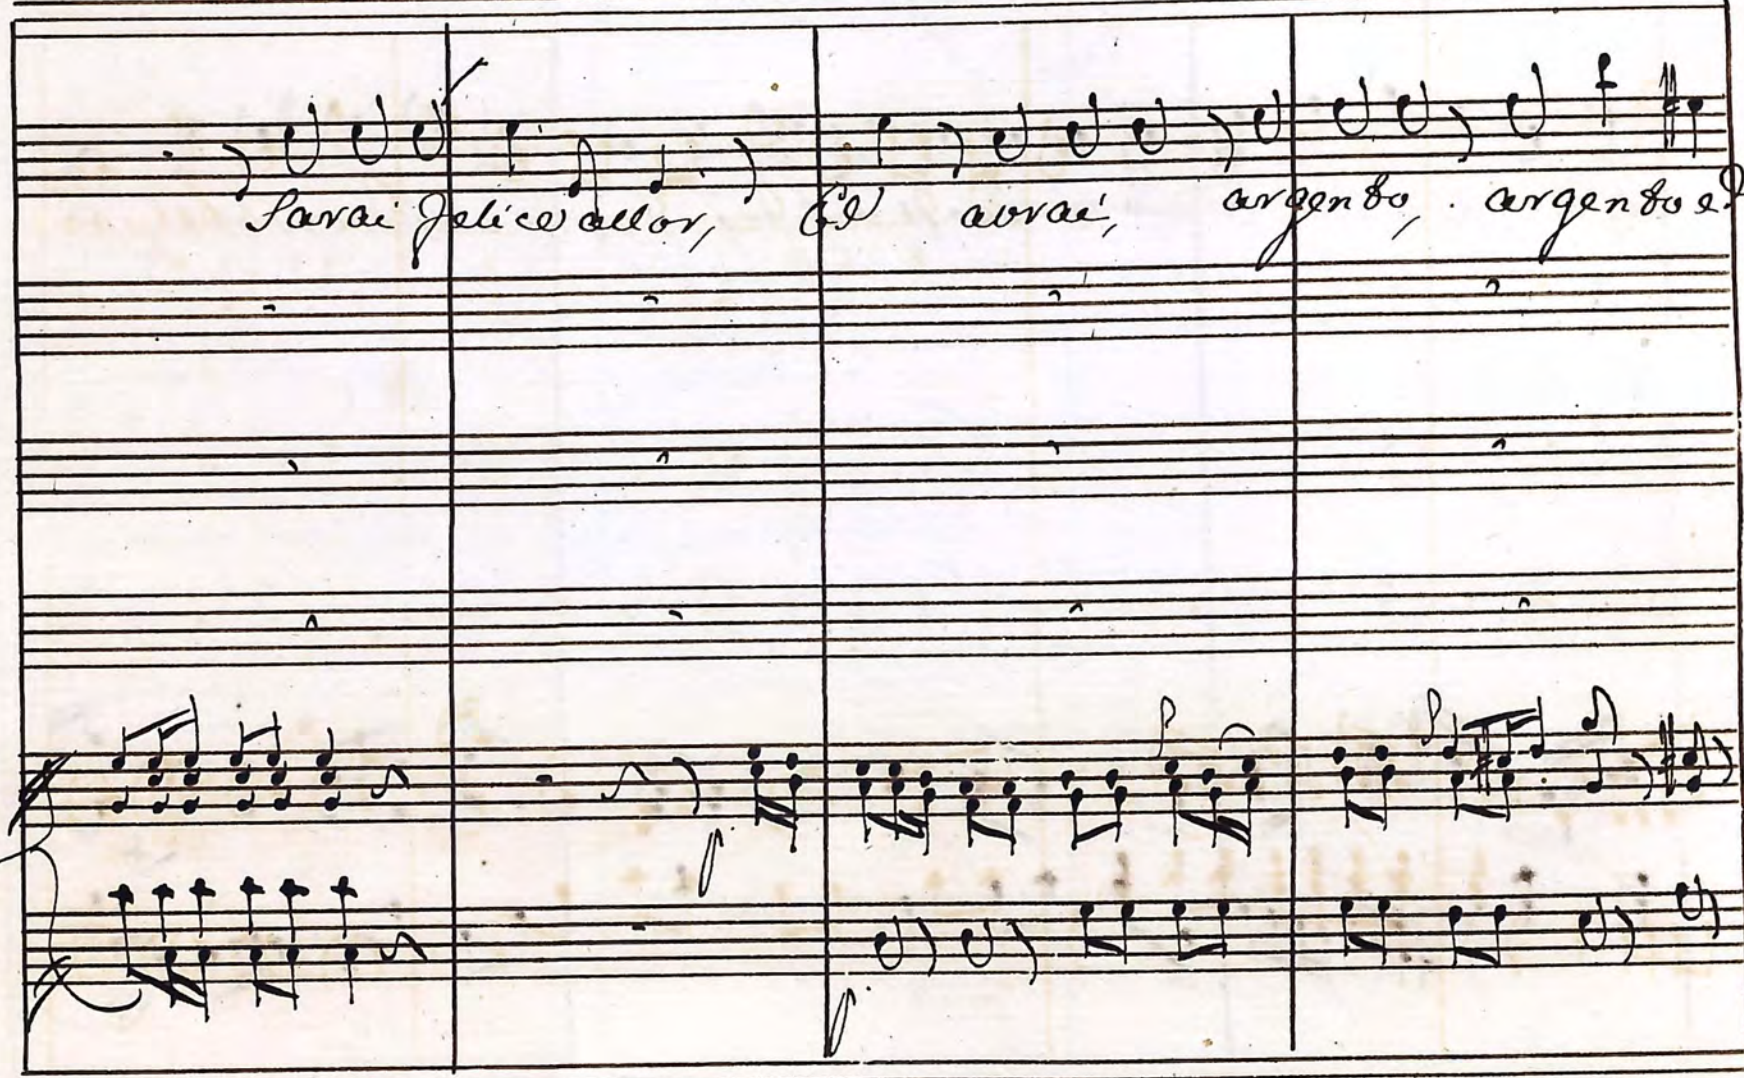 Sarai felice allor, avrai, argento, argento e
p
p
p
p